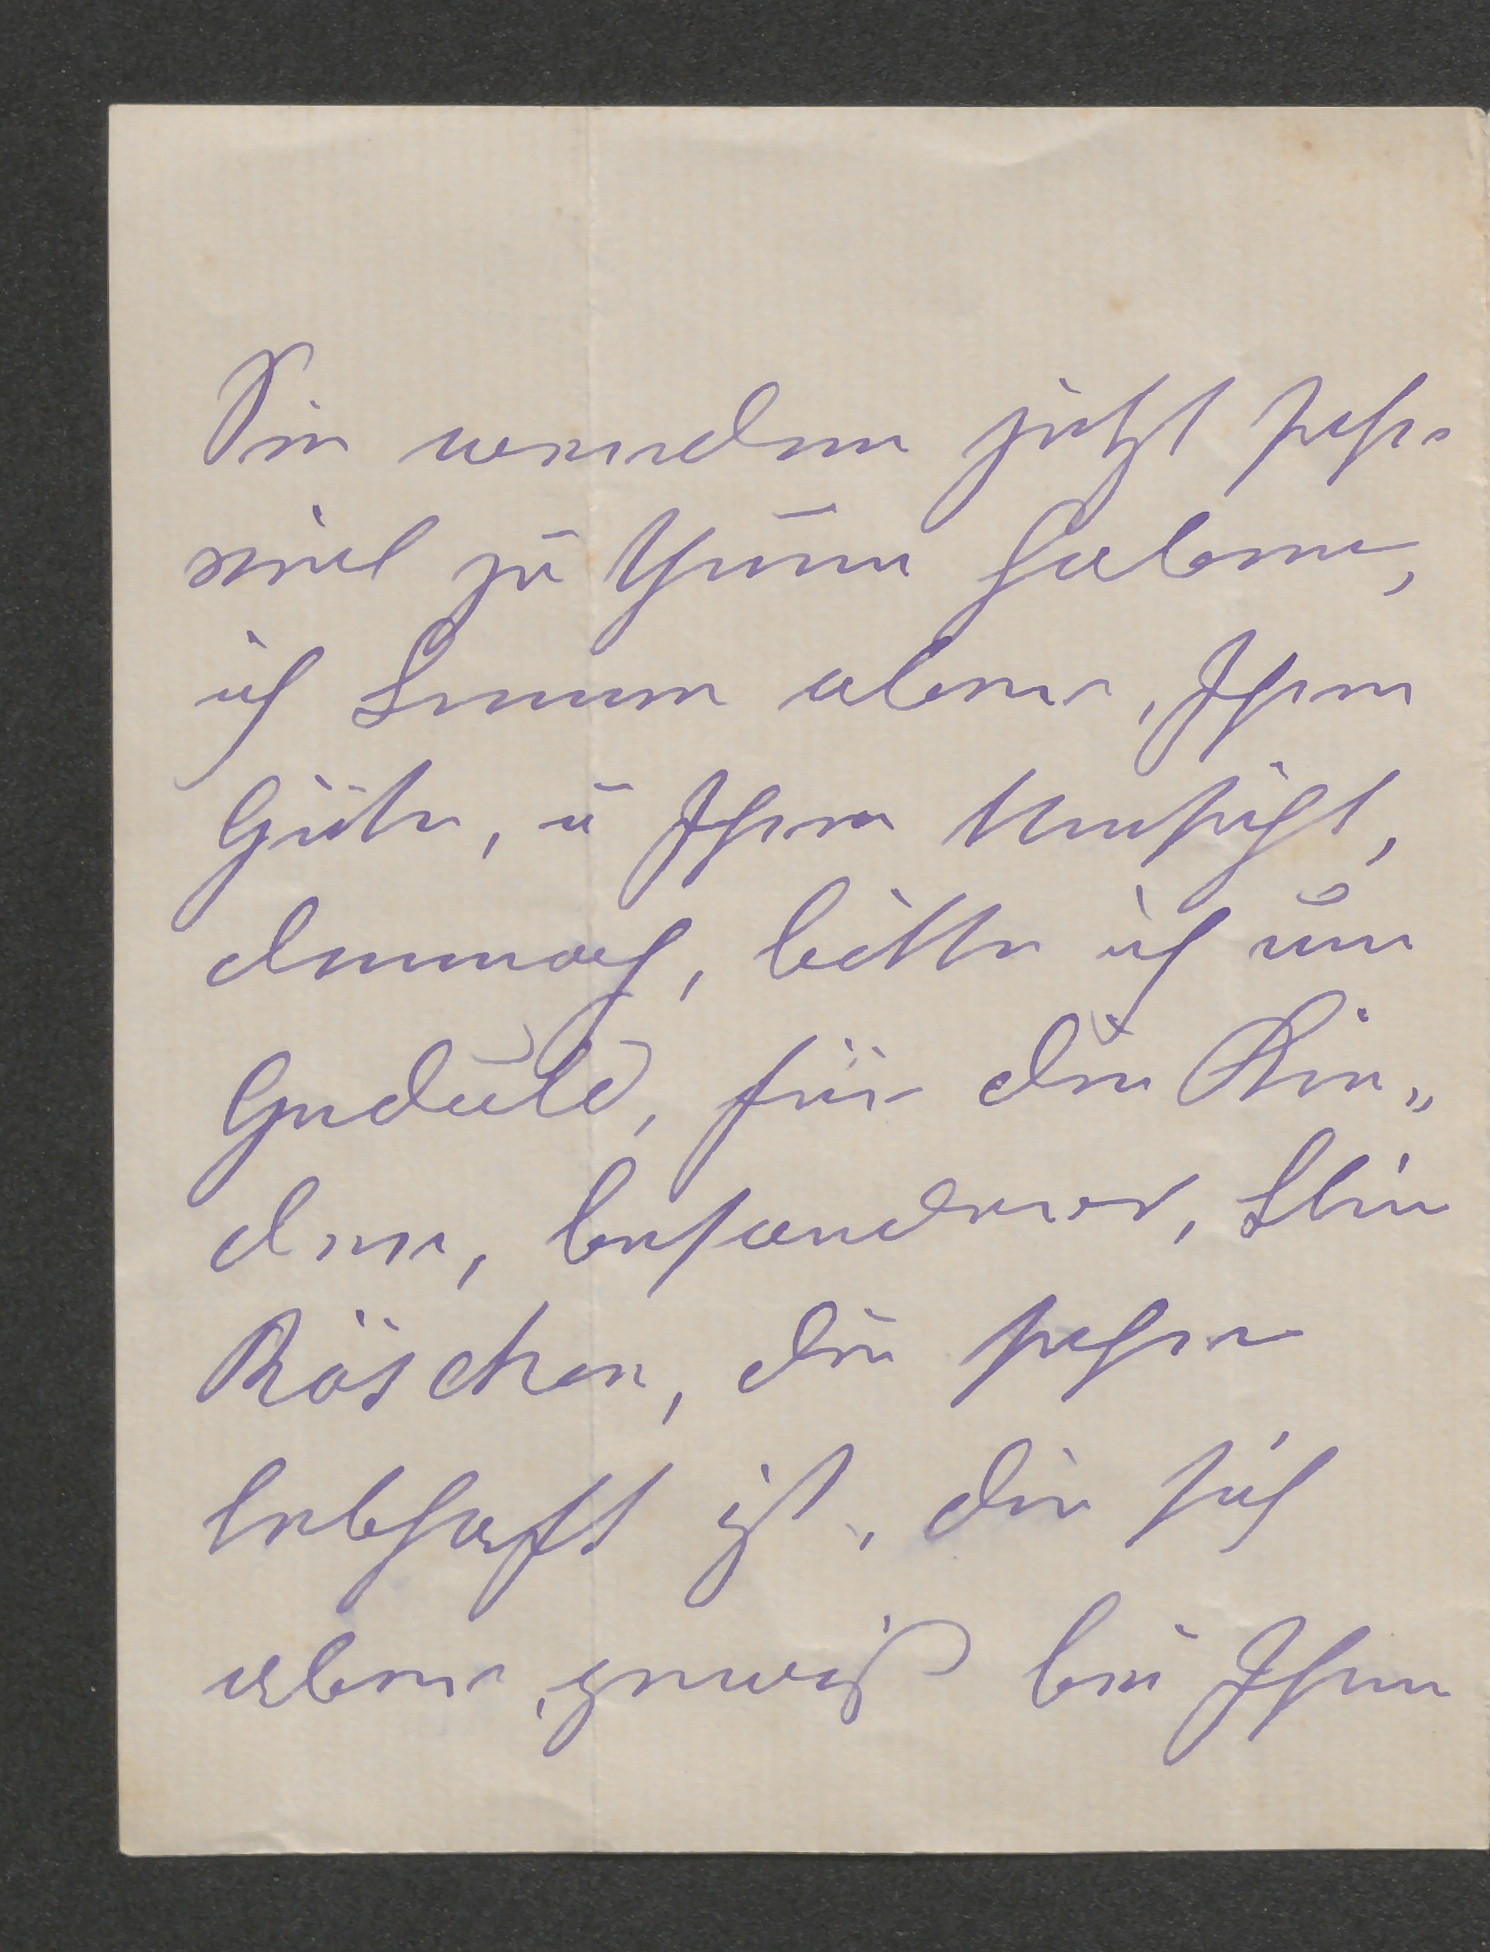 Sie werden jetzt sehr
viel zu thuen haben,
ich kenne aber, Ihre
Güte, u Ihre Umsicht,
dennoch, bitte ich um
Geduld, für die Kin„
der, besonders, klein
Röschen, die sehr
lebhaft ist, die sich
aber, gewiß bei Ihnen